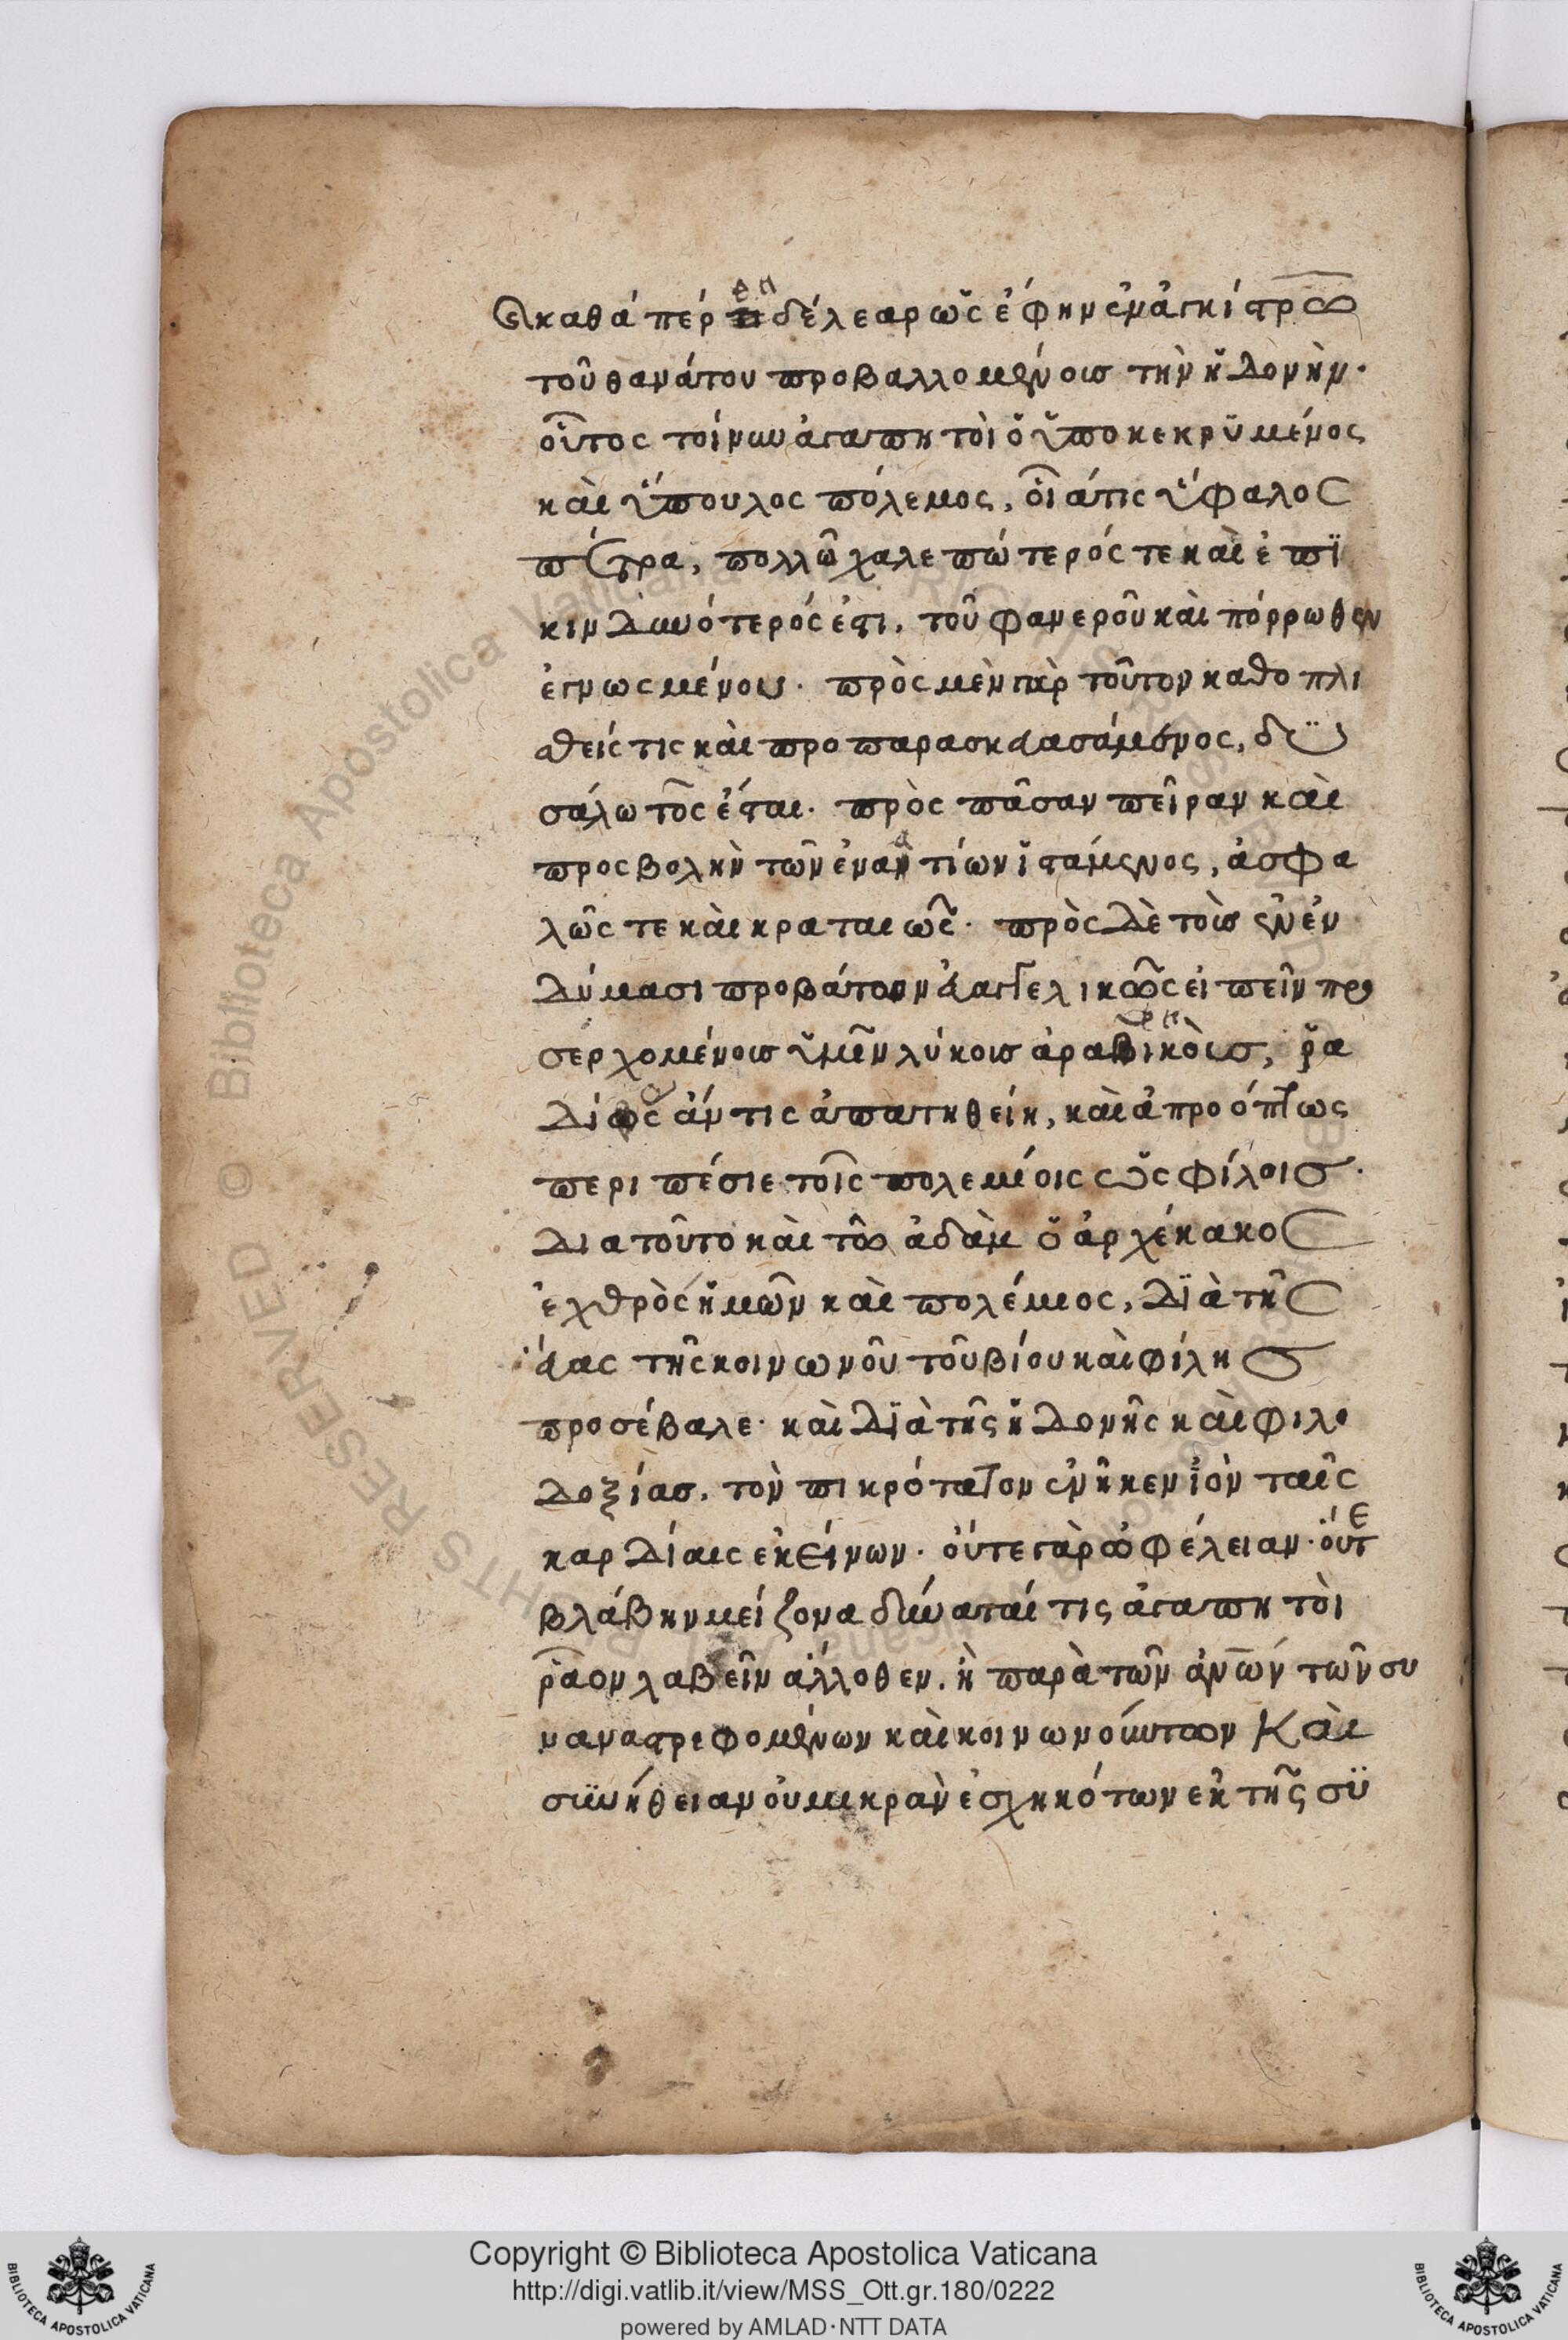 καθάπερ τι δέλεαρ ὡς ἔφην ἐν ἀγκίστρω
τοῦ θανάτου προβαλλομένοις τὴν ἡδονήν·
οὗτος τοίνυν ἀγαπητοὶ ὁ ὑποκεκρυμένος
καὶ ὕπουλος πόλεμος, οἷά τις ὕφαλος
πέτρα, πολλῶ χαλεπώτερός τε καὶ ἐπι
κινδυνότερός ἐστι, τοῦ φανεροῦ καὶ πόρρωθεν
ἐγνωσμένου· πρὸς μὲν γὰρ τοῦτον καθοπλι
σθείς τις καὶ προπαρασκευασάμενος, δυ
σάλωτος ἔσται· πρὸς πᾶσαν πεῖραν καὶ
προσβολὴν τῶν ἐναντίων ἱστάμενος, ἀσφα
λῶς τε καὶ κραταιῶς· πρὸς δὲ τοῖς ἐν ἐν
δύμασι προβάτων εὐαγγελικῶς εἰπεῖν προ
σερχομένοις ὑμῖν λύκοις ἀραβικοῖς, ῥα
δίως ἄν τις ἀπατηθείη, καὶ ἀπροόπτως
περιπέσιε τοῖς πολεμίοις ὡς φίλοις·
Δια τοῦτο καὶ τῶ ἀδὰμ ὁ ἀρχέκακος
ἐχθρὸς ἡμῶν καὶ πολέμιος, διὰ τῆς
εὔας τῆς κοινωνοῦ τοῦ βίου καὶ φίλης
προσέβαλε· καὶ διὰ τῆς ἡδονῆς καὶ φιλο
δοξίας, τὸν πικρότατον ἐνῆκεν ἰὸν ταῖς
καρδίαις ἐκείνων· οὔτε γὰρ ὠφέλειαν· οὔτε
βλάβην μείζονα δύναταί τις ἀγαπητοὶ
ῥᾶον λαβεῖν ἄλλοθεν, ἢ παρὰ τῶν ἀνων τῶν συ
ναναστρεφομένων καὶ κοινωνούντων καὶ
συνήθειαν οὐ μικρὰν ἐσχηκότων ἐκ τῆς συ
Copyright © Biblioteca Apostolica Vaticana
http://digi.vatlib.it/view/MSS_Ott.gr.180/0222
powered by AMLAD·NTT DATA